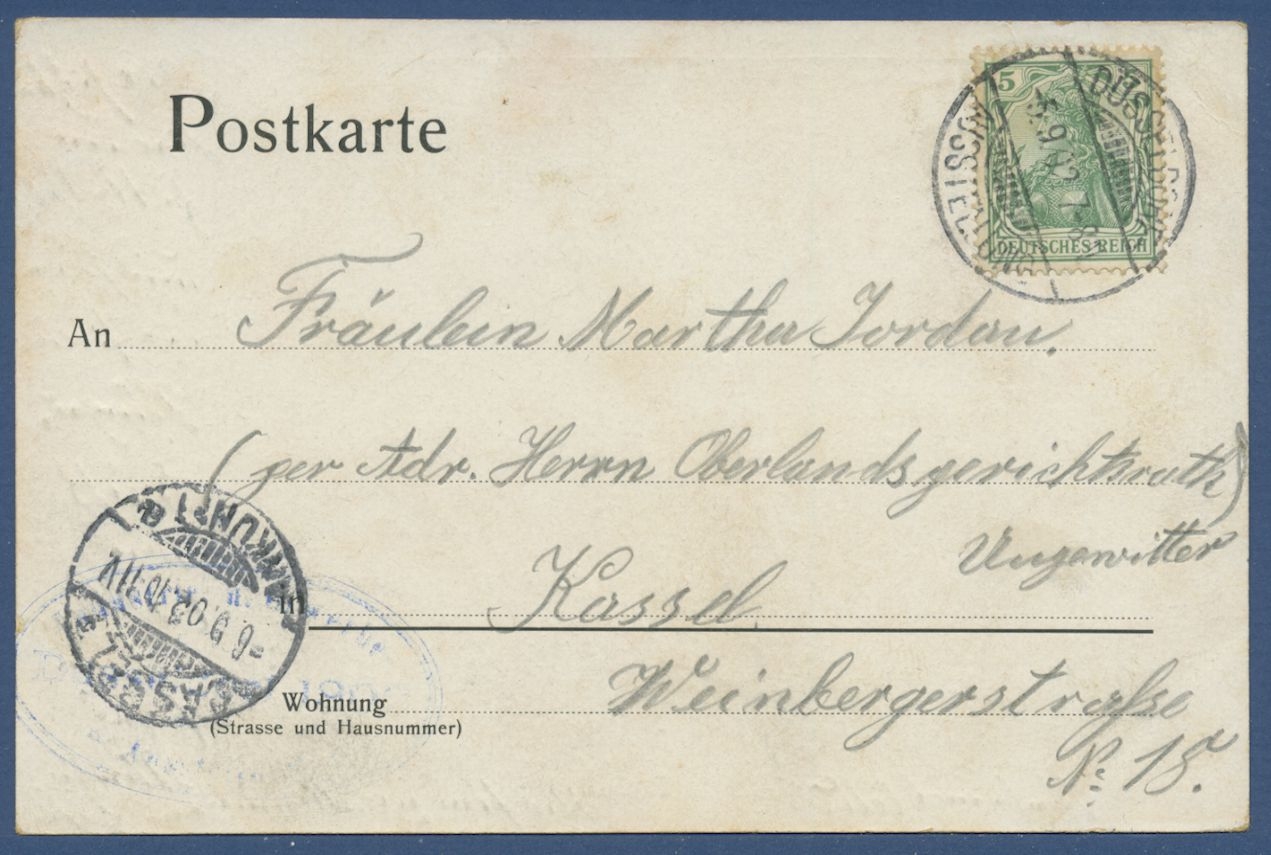 Postkarte
5
DEUTSCHES REICH
DÜSSELDORF
7-8
An Fräulein Martha Jordan.
(per Adr. Herrn Oberlandsgerichtsrath)
Ungewitter
in Kassel
Wohnung Weinbergerstraße
(Strasse und Hausnummer)
No 18.
CASSEL
-6.9.02.10-11V
ANKUNFT